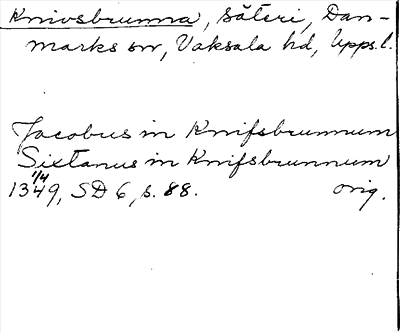 Knivsbrunna, säteri, Dan-
marks sn, Vaksala hd, Upps.l.
Jacobus in Knifsbrunnum
Sixtanus in Knifsbrunnum
1349 1/4, SD 6, s. 88. orig.